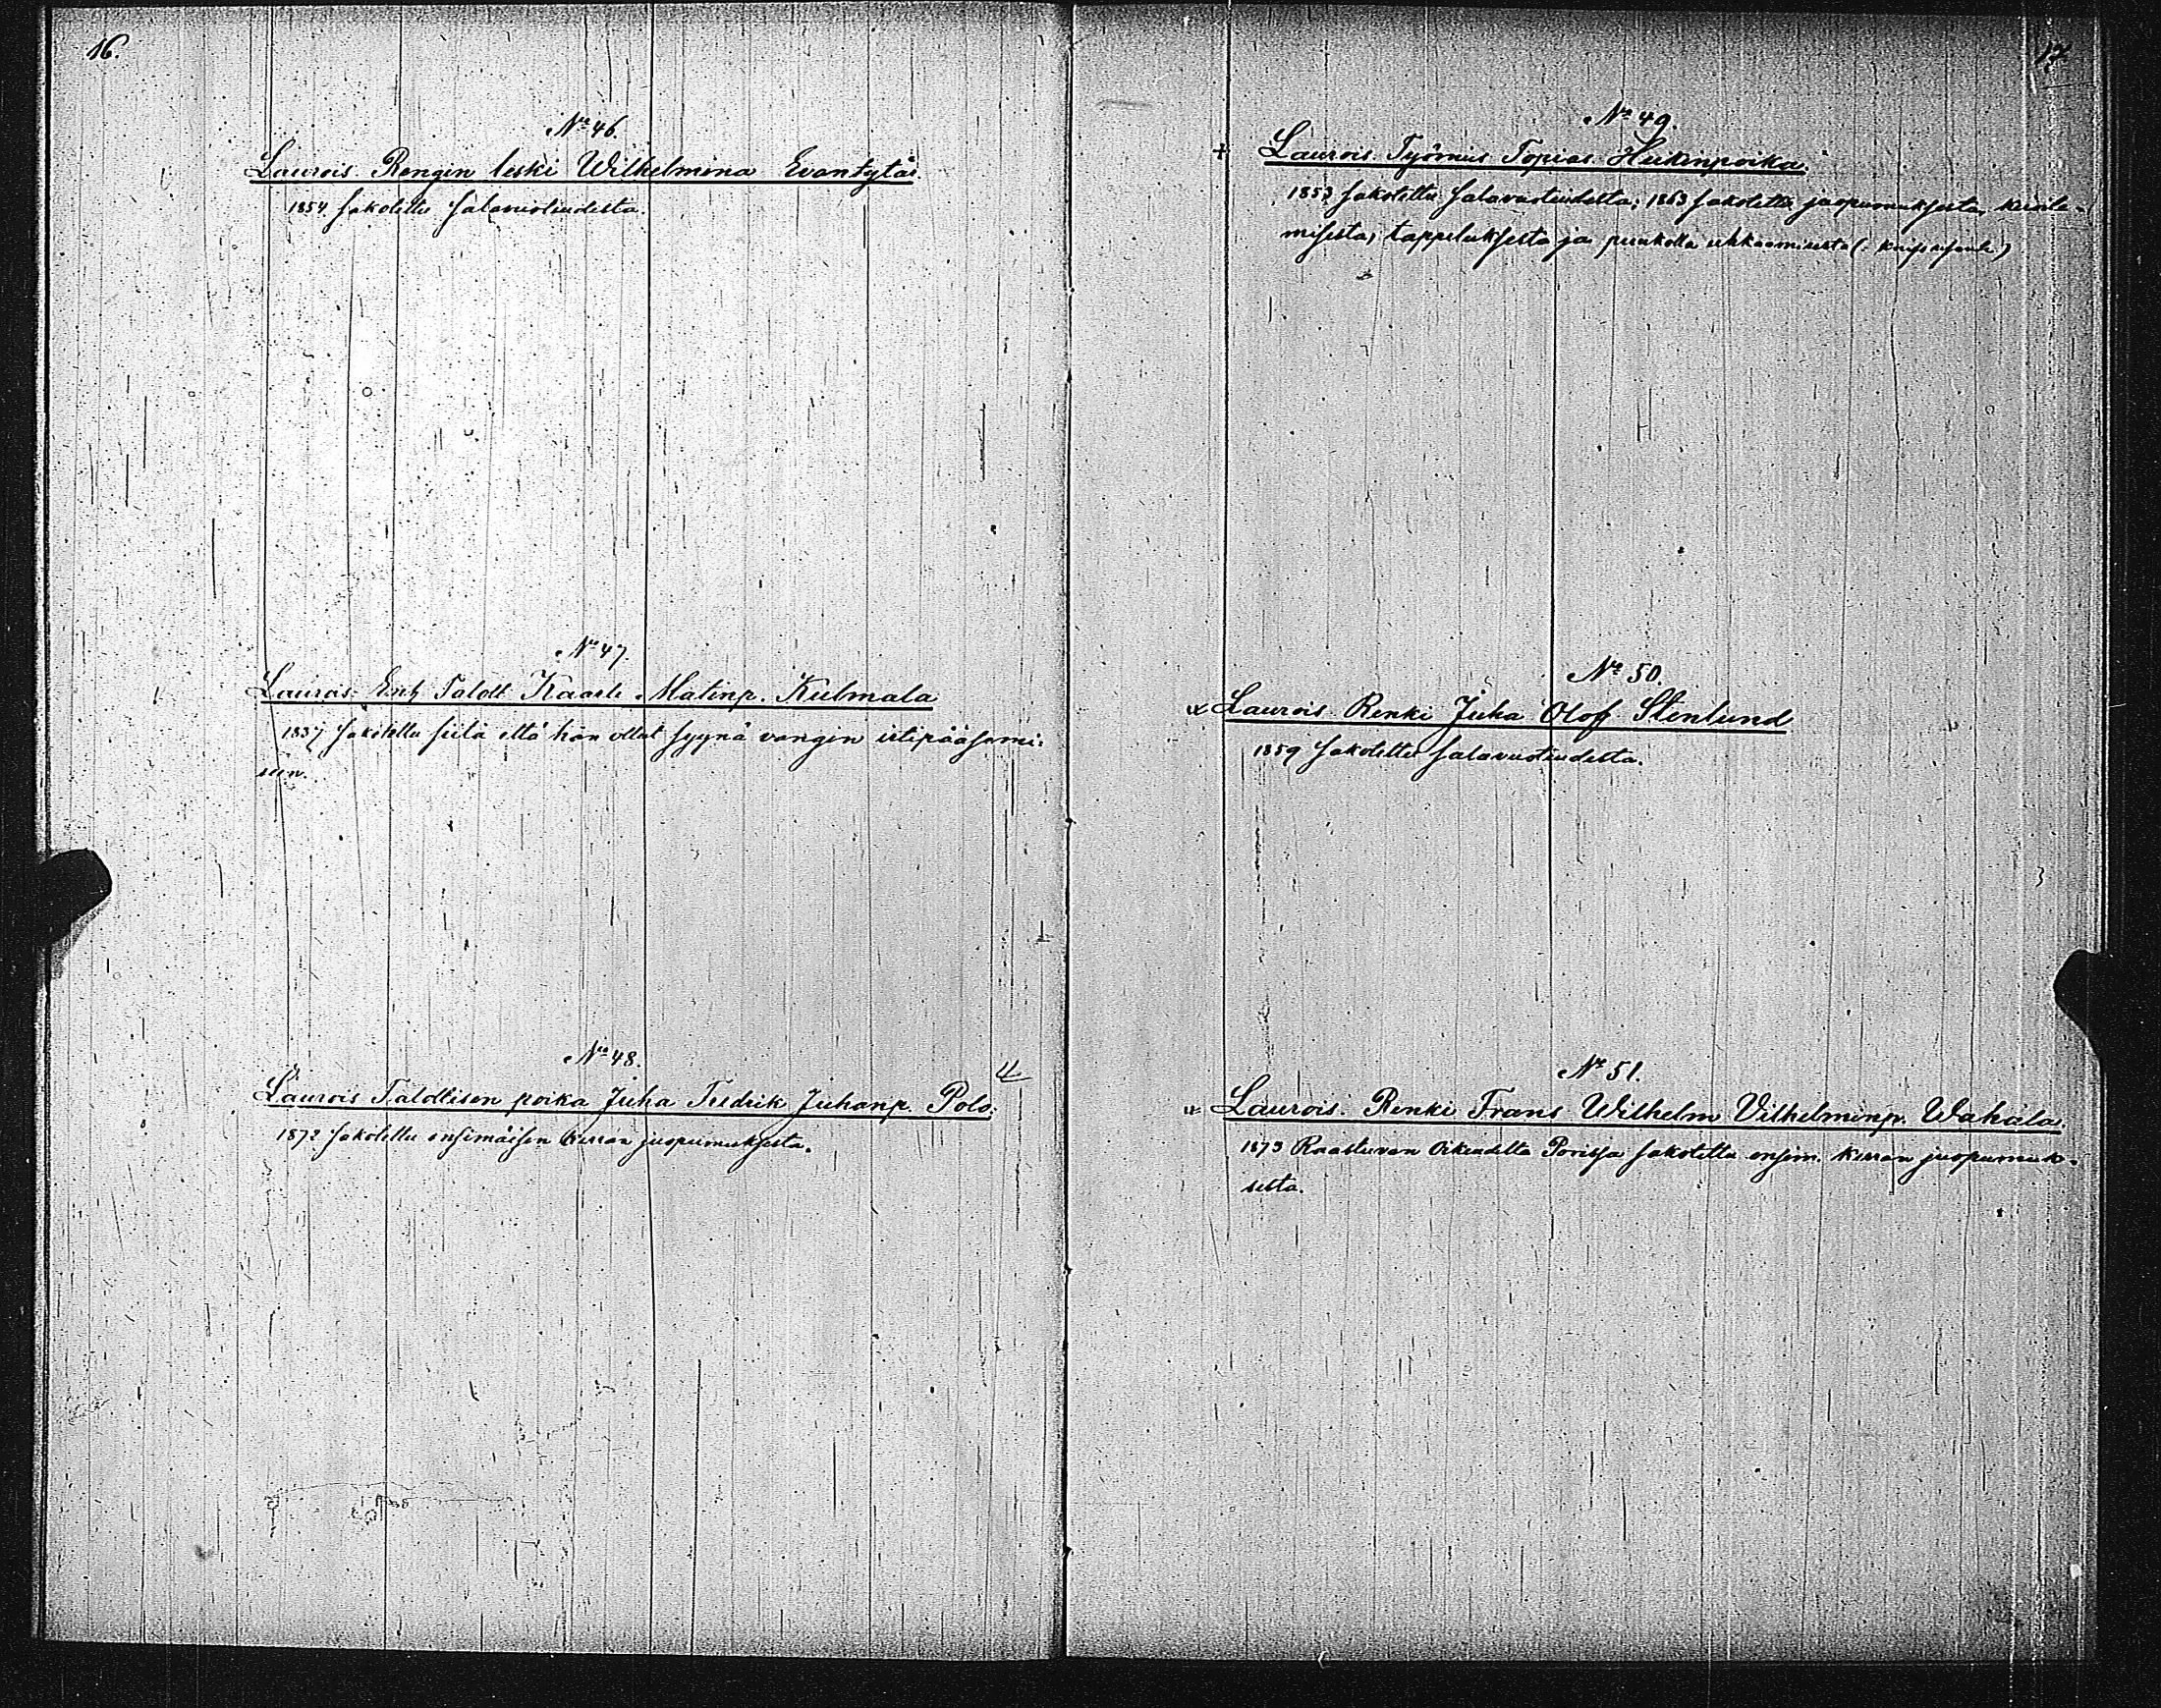 16.
No 46.
Laurois Rengin leski Wilhelmina Evantytär.
1854 sakotettu salavuoteudesta.
No 47.
Laurois. Ent. Taloll. Kaarle Matinp. Kulmala
1837 sakotettu siitä että hän ollut syynä vangin irtipääsemi-
seen.
No 48.
Laurois Talollisen poika Juha Fredrik Juhanp. Polo.
1872 sakotettu ensimäisen kerran juopumuksesta.
17
No 49.
+ Laurois. Työmies Topias Heikinpoika.
1853 sakotettu salavuoteudesta; 1863 sakotettu juopumuksesta, kiroile-
misesta, tappeluksesta ja puukolla uhkaamisesta
No 50.
Laurois. Renki Juha Olof Stenlund
1859 sakotettu salavuoteudesta.
No 51.
Laurois. Renki Frans Wilhelm Vilhelminp. Wahala.
1873 Raastuvan Oikeudelta Porissa sakotettu ensim. kerran juopumuk-
sesta.